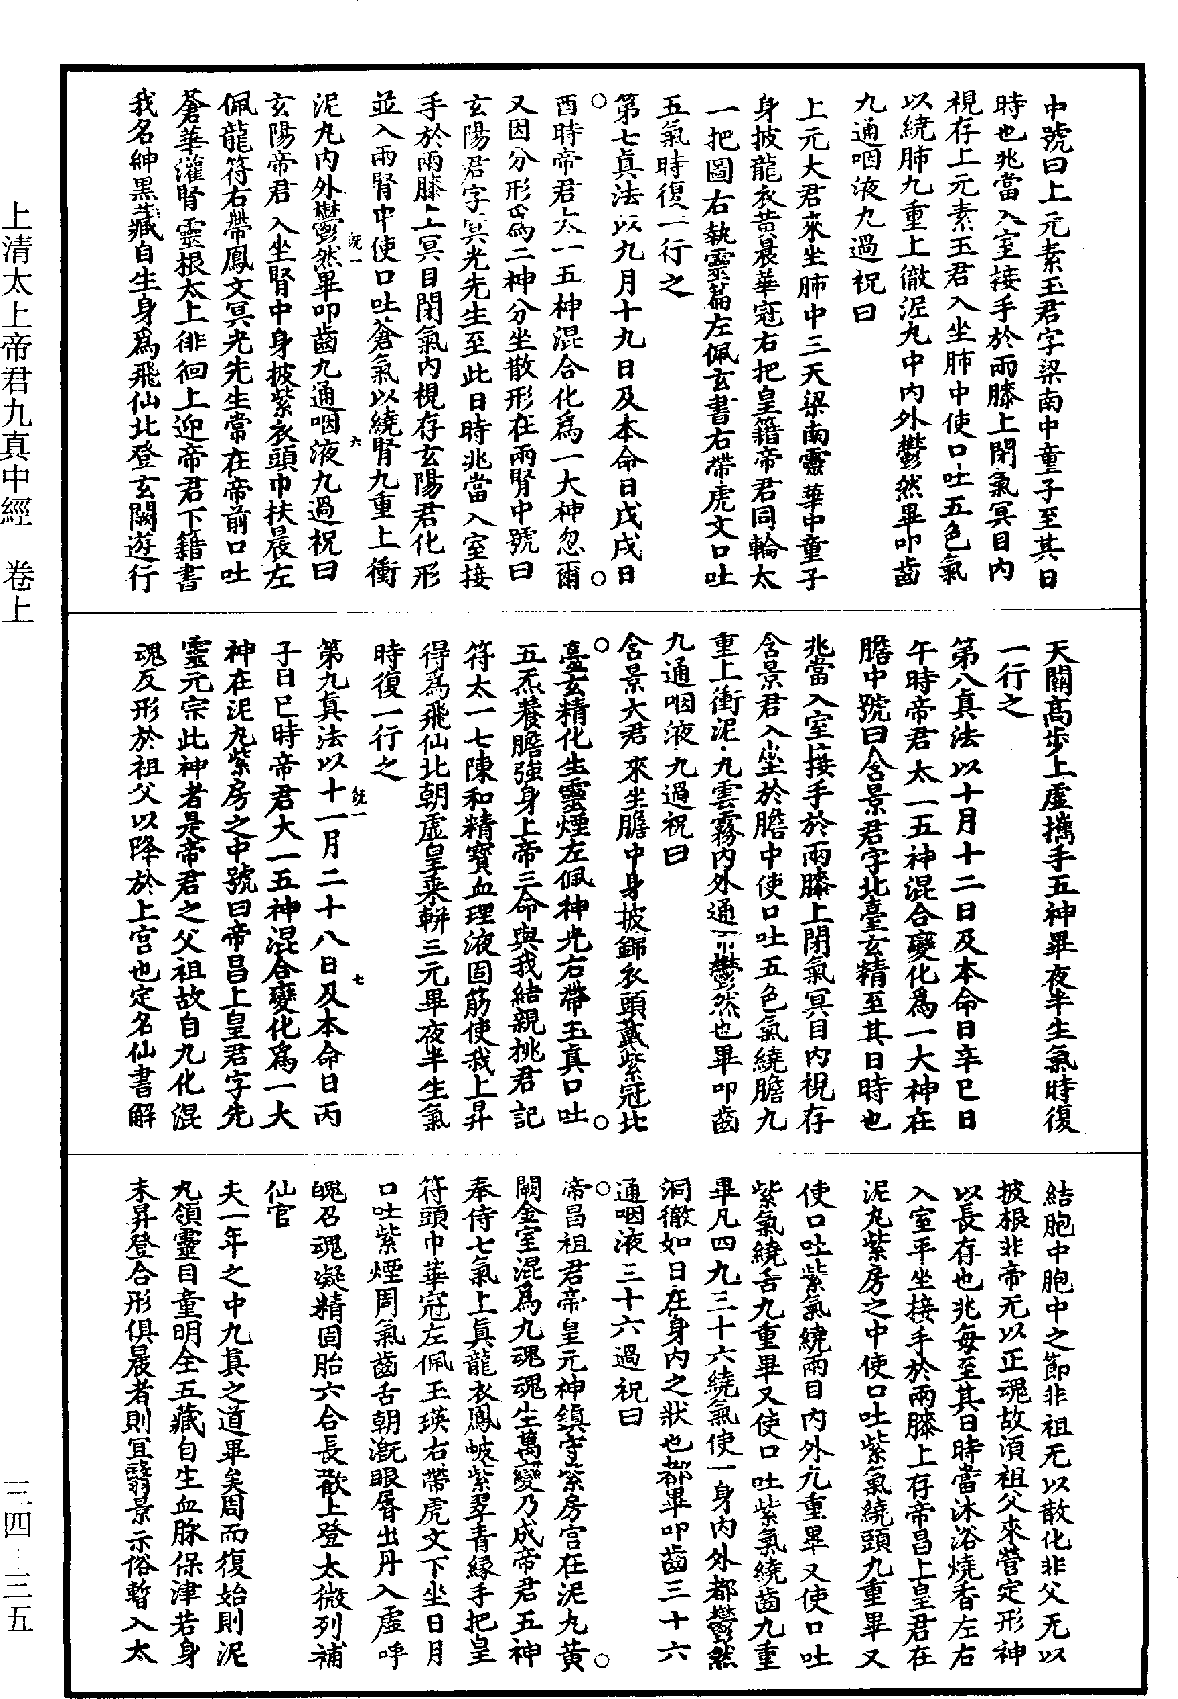 中號曰上元素玉君字梁南中童子至其日
時也兆當入室接手於兩膝上閉氣冥目內
視存上元素玉君入坐肺中使口吐五色氣
以繞肺九重上徹泥丸中內外鬱然畢叩齒
九通咽液九過祝曰
上元大君來坐肺中三天梁南靈華中童子
身披龍衣黃晨華冠右把皇籍帝君同輪太
一把圖右執靈篇左佩玄書右帶虎文口吐
五氣時復一行之
第七真法以九月十九日及本命日戊戌日
酉時帝君太一五神混合化為一大神忽爾
又因分形為二神分坐散形在兩腎中號曰
玄陽君字冥光先生至此日時兆當入室接
手於兩膝上冥目閉氣內視存玄陽君化形
並入兩腎中使口吐蒼氣以繞腎九重上衝
泥丸內外鬱然畢叩齒九通咽液九過祝曰
玄陽帝君入坐腎中身披紫衣頭巾扶晨左
佩龍符右帶鳳文冥光先生常在帝前口吐
蒼華灌腎靈根太上徘徊上迎帝君下籍書
我名紳黑藏自生身為飛仙北登玄闕遊行
天關高步上虛攜手五神畢夜半生氣時復
一行之
第八真法以十月十二日及本命日辛巳日
午時帝君太一五神混合變化為一大神在
膽中號曰含景君字北臺玄精至其日時也
兆當入室接手於兩膝上閉氣冥目內視存
含景君入坐於膽中使口吐五色氣繞膽九
重上衝泥丸雲霧內外通一鬱然也畢叩齒
九通咽液九過祝曰
含景大君來坐膽中身披錦衣頭戴紫冠北
臺玄精化生靈煙左佩神光右帶玉真口吐
五炁養膽強身上帝三命與我結親挑君記
符太一七陳和精寶血理液固筋使我上昇
得為飛仙北朝虛皇乘軿三元畢夜半生氣
時復一行之
第九真法以十一月二十八日及本命日丙
子日巳時帝君大一五神混合變化為一大
神在泥丸紫房之中號曰帝昌上皇君字先
靈元宗此神者是帝君之父祖故自九化混
魂反形於祖父以降於上宮也定名仙書解
結胞中胞中之節非祖无以散化非父无以
披根非帝无以正魂故須祖父來營定形神
以長存也兆每至其日時當沐浴燒香左右
入室平坐接手於兩膝上存帝昌上皇君在
泥丸紫房之中使口吐紫氣繞頭九重畢又
使口吐紫氣繞兩目內外九重畢又使口吐
紫氣繞舌九重畢又使口吐紫氣繞齒九重
畢凡四九三十六繞氣使一身內外都鬱然
洞徹如日在身內之狀也都畢叩齒三十六
通咽液三十六過祝曰
帝昌祖君帝皇元神鎮守紫房宮在泥丸黃
闕金室混為九魂魂生萬變乃成帝君五神
奉侍七氣上真龍衣鳳帔紫翠青緣手把皇
符頭巾華冠左佩玉瑛右帶虎文下坐日月
口吐紫煙周氣齒舌朝漑眼脣出丹入虛呼
魄召魂凝精固胎六合長歡上登太微列補
仙官
夫一年之中九真之道畢矣周而復始則泥
丸領靈目童明全五藏自生血脉保津若身
未昇登合形俱晨者則宜翳景示俗暫入太
上清太上帝君九真中經 卷上
三四-三五